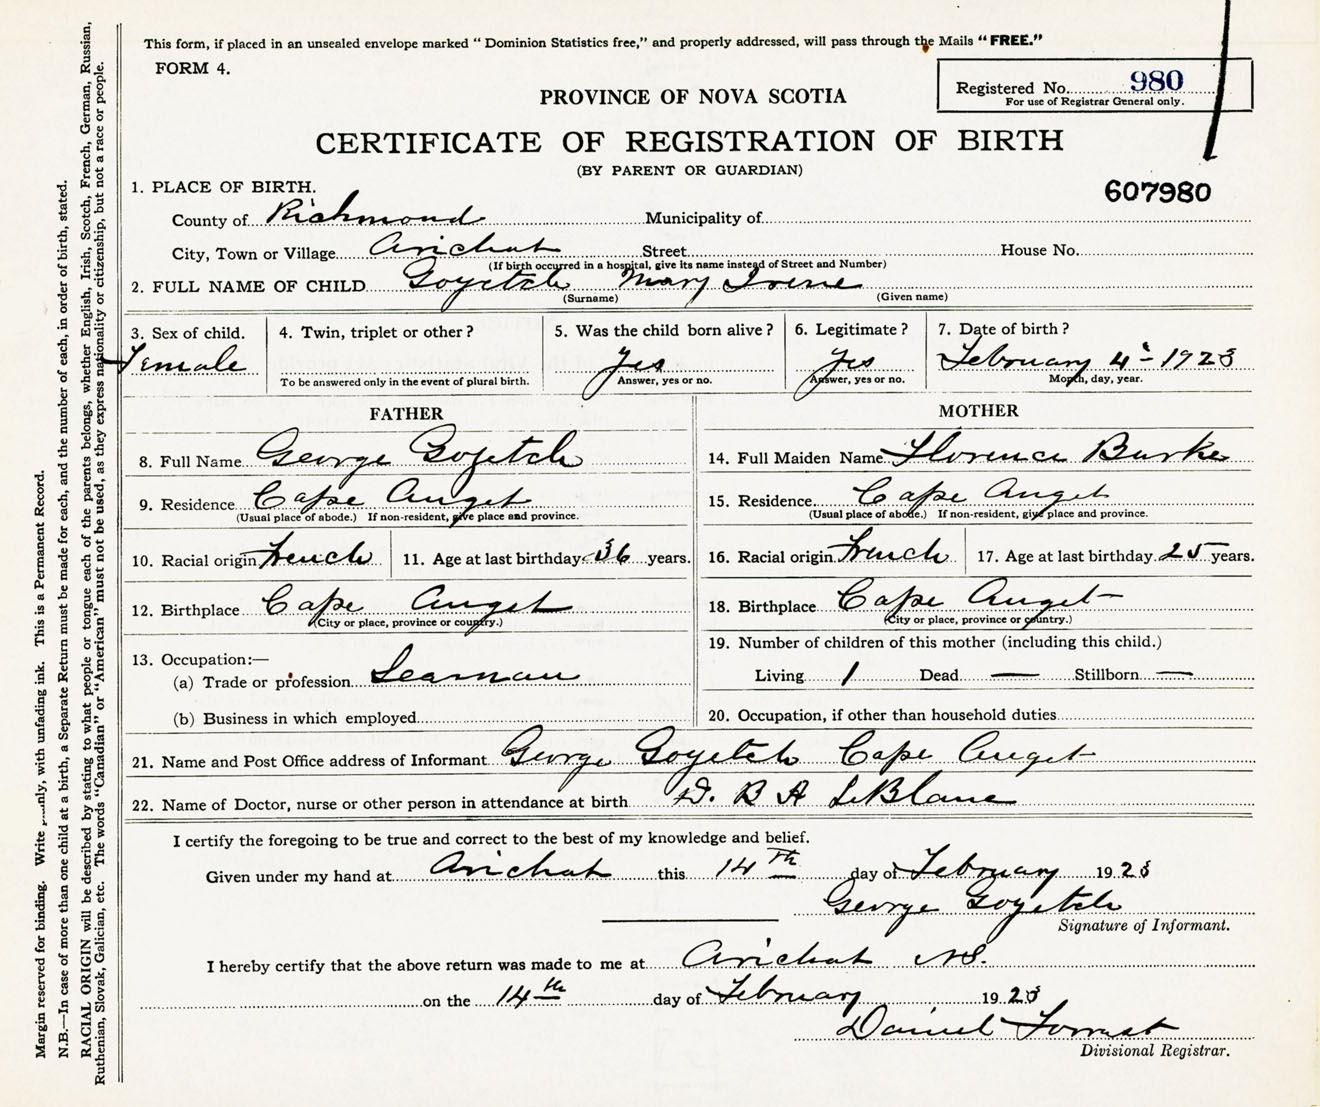 This form, if placed in an unsealed envelope marked “ Dominion Statistics free,” and properly addressed, will pass through the Mails “ FREE.”
FORM 4.
Registered No. 980
For use of Registrar General only.
PROVINCE OF NOVA SCOTIA
CERTIFICATE OF REGISTRATION OF BIRTH
(BY PARENT OR GUARDIAN)
607980
1. PLACE OF BIRTH.
County of Richmond Municipality of
City, Town or Village Arichat Street House No.
(If birth occurred in a hospital, give its name instead of Street and Number)
2. FULL NAME OF CHILD Goyetch Mary Irene
(Surname) (Given name)
3. Sex of child. 4. Twin, triplet or other ? 5. Was the child born alive ? 6. Legitimate ? 7. Date of birth ?
Female Yes Yes February 4 - 1923
To be answered only in the event of plural birth. Answer, yes or no. Answer, yes or no. Month, day, year.
FATHER MOTHER
8. Full Name George Goyetch 14. Full Maiden Name Florence Burke
9. Residence Cape Auget 15. Residence Cape Auget
(Usual place of abode.) If non-resident, give place and province. (Usual place of abode.) If non-resident, give place and province.
10. Racial origin French 11. Age at last birthday 36 years. 16. Racial origin French 17. Age at last birthday 25 years.
12. Birthplace Cape Auget 18. Birthplace Cape Auget
(City or place, province or country.) (City or place, province or country.)
13. Occupation:— 19. Number of children of this mother (including this child.)
(a) Trade or profession Seaman Living 1 Dead — Stillborn —
(b) Business in which employed 20. Occupation, if other than household duties
21. Name and Post Office address of Informant George Goyetch Cape Auget
22. Name of Doctor, nurse or other person in attendance at birth D. B A LeBlanc
I certify the foregoing to be true and correct to the best of my knowledge and belief.
Given under my hand at Arichat this 14th day of February 1923
George Goyetch
Signature of Informant.
I hereby certify that the above return was made to me at Arichat NS.
on the 14th day of February 1923
Daniel Forrest
Divisional Registrar.
Margin reserved for binding. Write with unfading ink. This is a Permanent Record.
N.B.—In case of more than one child at a birth, a Separate Return must be made for each, and the number of each, in order of birth, stated.
RACIAL ORIGIN will be described by stating to what people or tongue each of the parents belongs, whether English, Irish, Scotch, French, German, Russian,
Ruthenian, Slovak, Galician, etc. The words “Canadian” or “American” must not be used, as they express nationality or citizenship, but not a race or people.